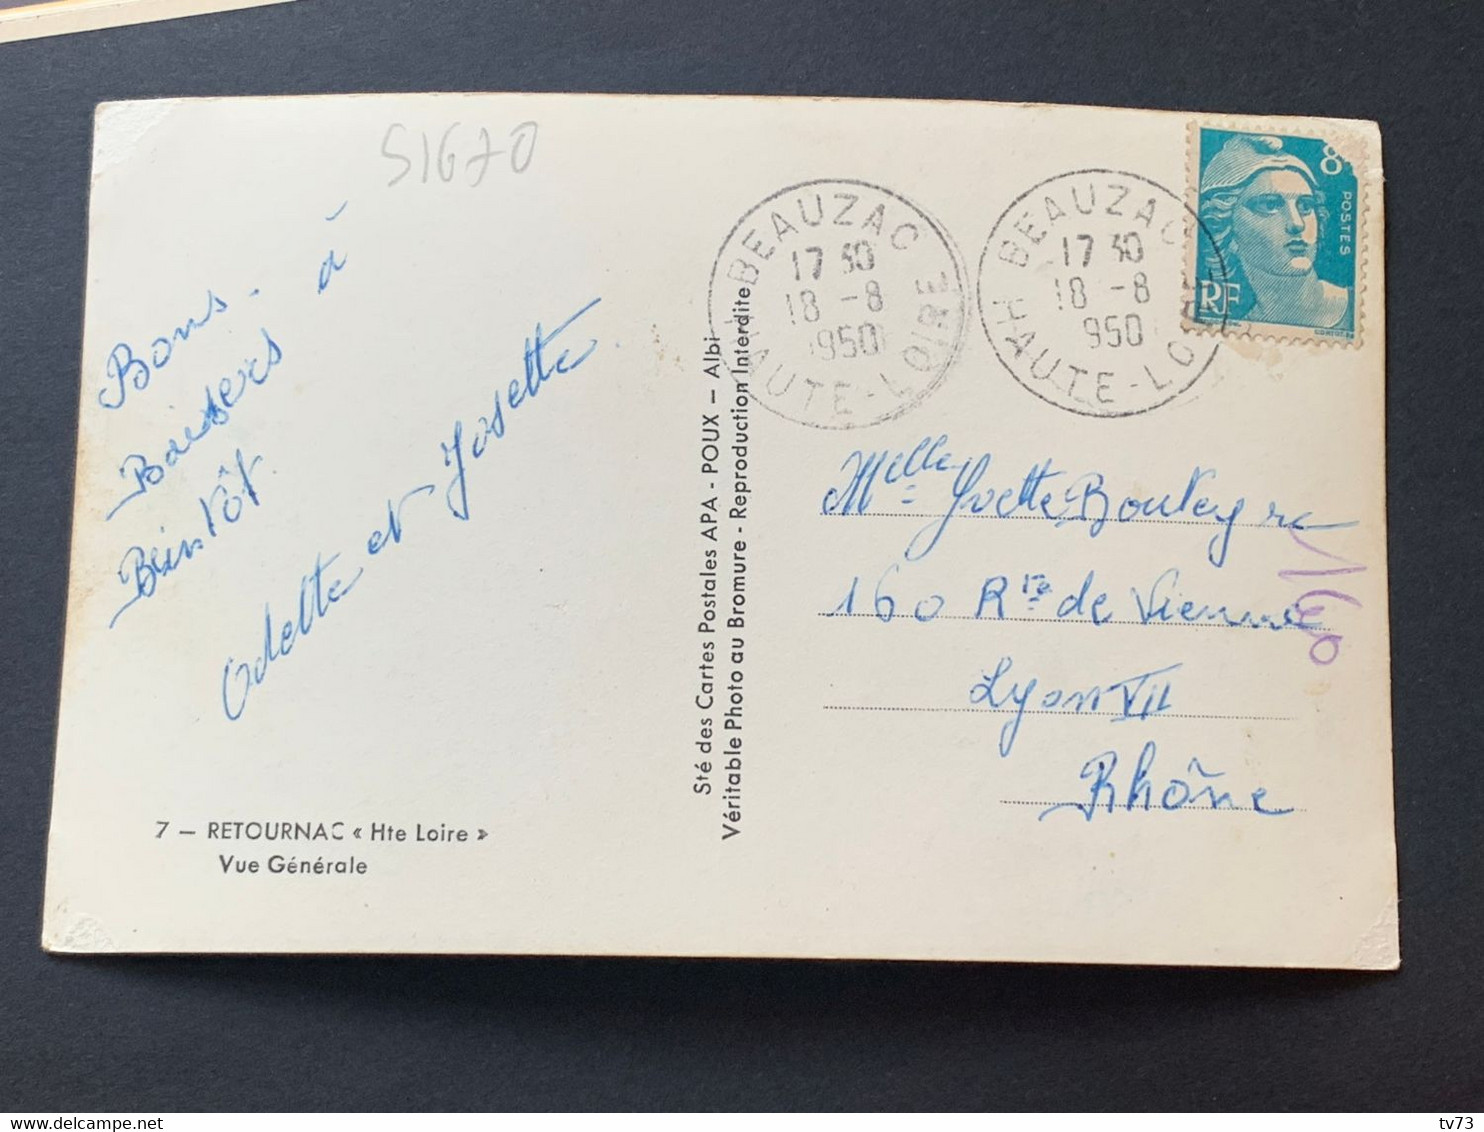 S1670
Bons - à
Baisers
Bientôt.
Odette et Josette
7 — RETOURNAC « Hte Loire »
Vue Générale
Sté des Cartes Postales APA - POUX — Albi
Véritable Photo au Bromure - Reproduction Interdite
BEAUZAC
17 30
18 -8
1950
HAUTE-LOIRE
BEAUZAC
17 30
18 -8
950
HAUTE-LOIRE
8F
POSTES
RF
Melle Yvette Bouteyre
160 Rte de Vienne
Lyon VII
Rhône
160
tv73